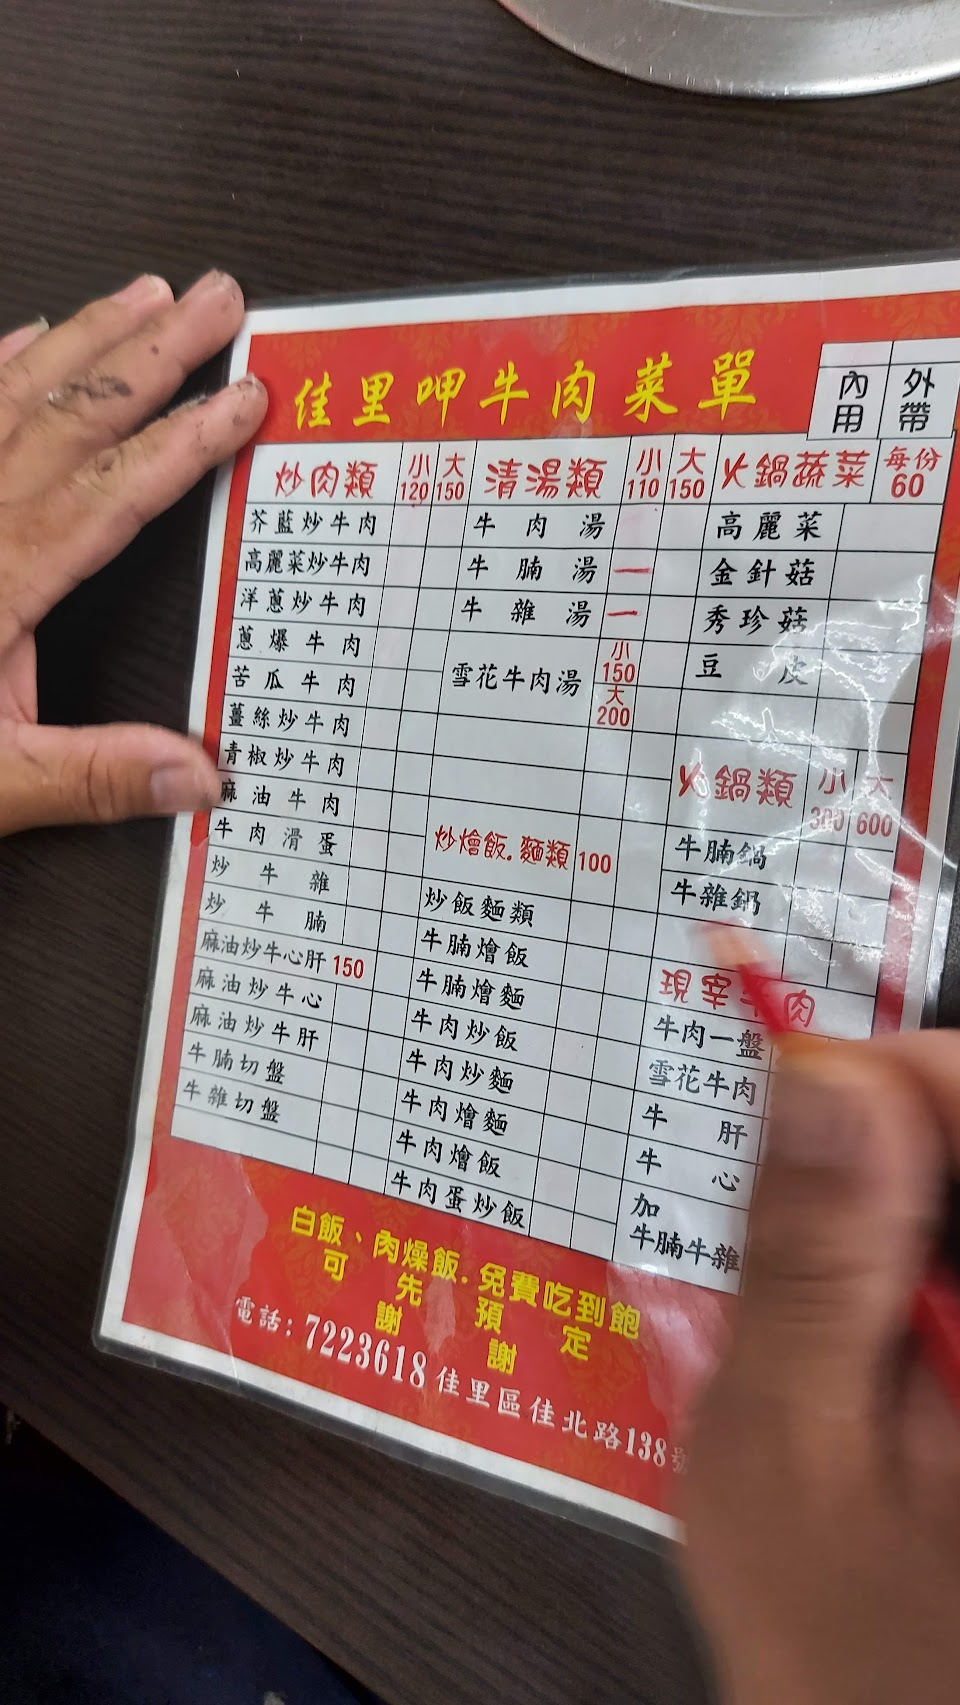 佳里呷牛肉菜單
內用 外帶
炒肉類 小120 大150
芥藍炒牛肉
高麗菜炒牛肉
洋蔥炒牛肉
蔥爆牛肉
苦瓜牛肉
薑絲炒牛肉
青椒炒牛肉
麻油牛肉
牛肉滑蛋
炒牛雜
炒牛腩
麻油炒牛心肝 150
麻油炒牛心
麻油炒牛肝
牛腩切盤
牛雜切盤
清湯類 小110 大150
牛肉湯
牛腩湯 一
牛雜湯 一
雪花牛肉湯 小150 大200
炒燴飯.麵類 100
炒飯麵類
牛腩燴飯
牛腩燴麵
牛肉炒飯
牛肉炒麵
牛肉燴麵
牛肉燴飯
牛肉蛋炒飯
火鍋蔬菜 每份60
高麗菜
金針菇
秀珍菇
豆皮
火鍋類 小300 大600
牛腩鍋
牛雜鍋
現宰牛肉
牛肉一盤
雪花牛肉
牛肝
牛心
加
牛腩牛雜
白飯、肉燥飯.免費吃到飽
可先預定
謝謝
電話:7223618佳里區佳北路138號